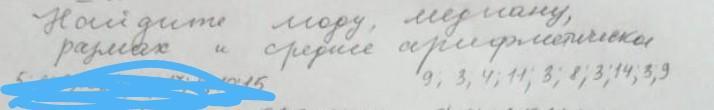 Найдите моду, медиану,
размах и среднее арифметическое
9; 3, 4; 11; 3; 8; 3; 14; 3, 9